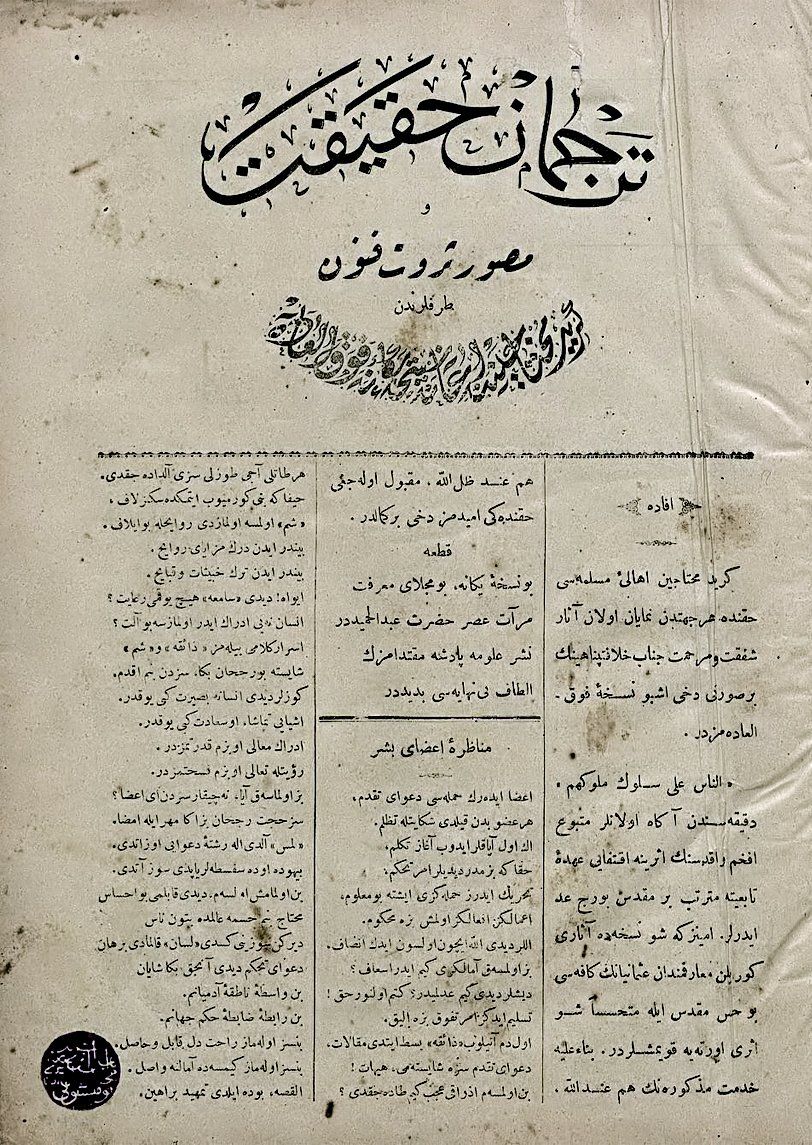 ترجمان حقیقت
و
مصور ثروت فنون
طرفلرندن
افاده
كريد محتاجين اهالئ مسلمه سی
حقنده هر جهتدن نمایان اولان آثار
شفقت ومرحمت جناب خلافتپناهینك
بر صورتی دخی اشبو نسخۀ فوق ـ
العاده مزدر .
« الناس علی سلوك ملوكهم »
دقیقه سندن آكاه اولانلر متبوع
افخم واقدسنك اثرینه اقتفایی عهدۀ
تابعیته مترتب بر مقدس بورج عد
ایدرلر. امینز كه شو نسخه ده آثاری
كوریلن معارفمندان عثمانیانك كافه سی
بو حس مقدس ایله متحسساً شو
اثری اورته یه قویمشلردر . بناء علیه
خدمت مذكوره نك هم عند الله ،
هم عند ظل الله ، مقبول اوله جغی
حقنده كی امیدمز دخی بركمالدر .
قطعه
بو نسخۀ یكانه ، بو مجلای معرفت
مرآت عصر حضرت عبدالحمیددر
نشر علومه پادشه مقتدامزك
الطاف بی نهایه سی بدیددر
مناظرۀ اعضای بشر
اعضا ایده رك جمله سی دعوای تقدم ،
هر عضو بدن قیلدی شكایتله تظلم .
اك اول آیاقلر ایدوب آغاز تكلم ،
حقا كه بزمدر دیدیلر امر تحكم .
تحریك ایدرز جمله كزی ایشته بو معلوم ،
اعمالكز افعالكز اولمش بزه محكوم .
اللر دیدی الله ایچون اولسون ایدك انصاف .
بز اولمسه ق آمالكزی كیم ایدر اسعاف ؟
دیشلر دیدی كیم عدلمیدر ؟ كتم اولنور حق !
تسلیم ایدكز امر تفوق بزه الیق .
اول دم آتیلوب « ذائقه » بسط ایتدی مقالات .
دعوای تقدم سزه شایسته می ، هیهات !
بن اولمسه م اذواقی عجب كیم طاده جقدی ؟
هر طاتلی آجی طوزلی سزی آلداده جقدی .
حیفا كه بنی كورمیوب ایتمكده سكز لاف ،
« شم » اولمسه اولمازدی روایحله بو ایلاف .
بیندر ایدن درك مزایای روایح .
بیندر ایدن ترك خبیثات و قبایح .
ایواه ! دیدی « سامعه » هیچ یوقمی رعایت ؟
انسان نه یی ادراك ایدر اولمازسه بو آلت ؟
اسرار كلامی بیله مز « ذائقه » و « شم »
شایسته بو رجحان بكا ، سزدن بنم اقدم .
كوزلر دیدی انسانه بصیرت كبی یوقدر .
اشیایی تماشا ، او سعادت كبی یوقدر .
ادراك معالی او بزم قدرتمزدر .
رؤیتله تعالی او بزم نسختمزدر .
بز اولماسه ق آیا ، نه چیقار سزدن ای اعضا ؟
سز حجت رجحان بزاكا مهر ایله امضا .
« لمس » آلدی اله رشتۀ دعوایی اوزاتدی .
بیهوده اوده سفسطه لر یاپدی سوز آتدی .
بن اولمامش اولسه م ، دیدی قابلمی بو احساس
محتاج بنم حسمه عالمده بتون ناس
دیركن سوزینی كسدی « لسان » قالمادی برهان
دعوای تحكم دیدی آنجق بكا شایان
بن واسطۀ ناطقۀ آدمیانم .
بن رابطۀ ضابطۀ حكم جهانم .
بنسز اوله ماز راحت دل قابل و حاصل .
بنسز اوله ماز كیمسه ده آمالنه واصل .
القصه ، بوده ایلدی تمهید براهین .